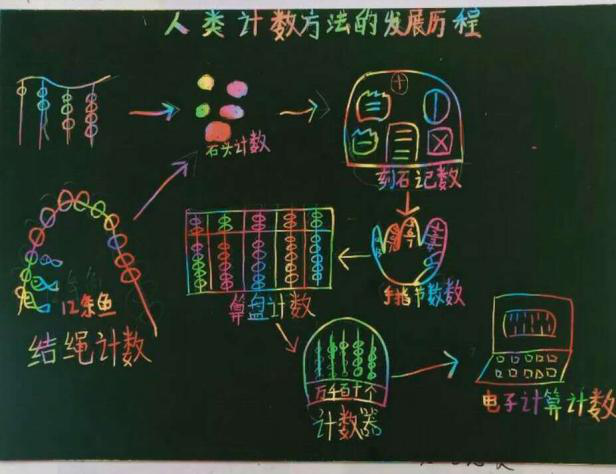 人类计数方法的发展历程
石头计数
刻石记数
12条鱼
结绳计数
算盘计数
手指节数数
万千百十个
计数器
电子计算计数